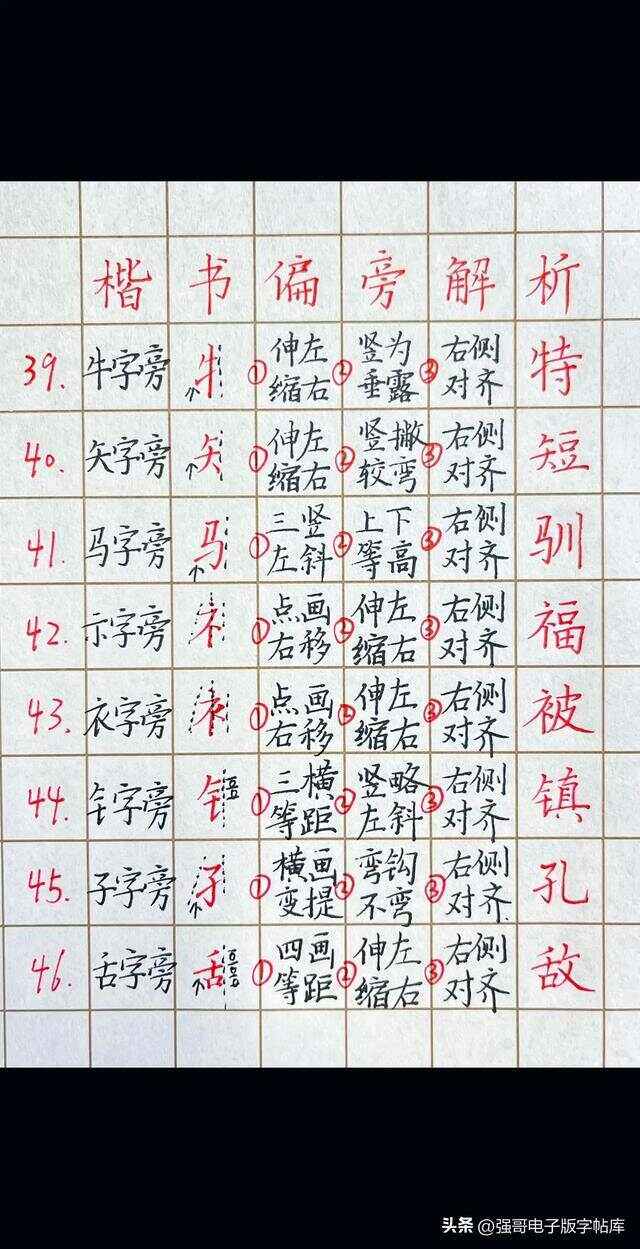 楷书偏旁解析
39. 牛字旁 牜 ①伸左缩右 ②竖为垂露 ③右侧对齐 特
40. 矢字旁 矢 ①伸左缩右 ②竖撇较弯 ③右侧对齐 短
41. 马字旁 马 ①三竖左斜 ②上下等高 ③右侧对齐 驯
42. 示字旁 礻 ①点画右移 ②伸左缩右 ③右侧对齐 福
43. 衣字旁 衤 ①点画右移 ②伸左缩右 ③右侧对齐 被
44. 钅字旁 钅 ①三横等距 ②竖略左斜 ③右侧对齐 镇
45. 子字旁 子 ①横画变提 ②弯钩不弯 ③右侧对齐. 孔
46. 舌字旁 舌 ①四画等距 ②伸左缩右 ③右侧对齐 敌
头条 @强哥电子版字帖库